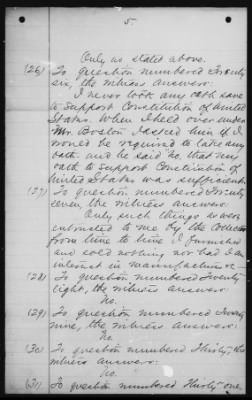 5.
Only as stated above.
(26) To question numbered Twenty
six, the witness answers:
I never took any oath save
to support Constitution of United
States. When I held over under
Mr. Boston I asked him if I
would be required to take any
oath and he said no, that my
oath to support Constitution of
United States was sufficient.
(27) To question numbered Twenty
seven, the witness answers:
Only such things as were
entrusted to me by the Collector
from time to time. I furnished
and sold nothing nor had I an
interest in manufacture of
(28) To question numbered Twenty
eight, the witness answers:
No.
(29) To question numbered Twenty
nine, the witness answers:
No.
(30) To question numbered Thirty, the
witness answers:
No.
(31) To question numbered Thirty one,